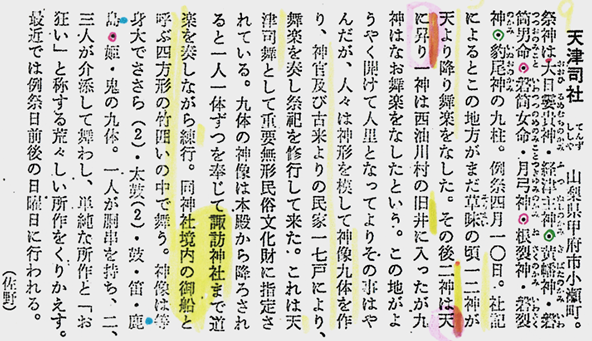 天津司社 てんずししゃ 山梨県甲府市小瀬町。
祭神は大日孁貴神・経津主神・黄幡神・磐
筒男命・磐筒女命・月弓神・根裂神・磐裂
神・豹尾神の九柱。例祭四月一〇日。社記
によるとこの地方がまだ草昧の頃一二神が
天より降り舞楽をなした。その後二神は天
に昇り一神は西油川村の旧井に入ったが九
神はなお舞楽をなしたという。この地がよ
うやく開けて人里となってよりその事はや
んだが、人々は神形を模して神像九体を作
り、神官及び古来よりの民家一七戸により、
舞楽を奏し祭祀を修行して来た。これは天
津司舞として重要無形民俗文化財に指定さ
れている。九体の神像は本殿から降ろされ
ると一人一体ずつを奉じて諏訪神社まで道
楽を奏しながら練行。同神社境内の御船と
呼ぶ四方形の竹囲いの中で舞う。神像は等
身大でささら(2)・太鼓(2)・鼓・笛・鹿
島・姫・鬼の九体。一人が胴串を持ち、二、
三人が介添して舞わし、単純な所作と「お
狂い」と称する荒々しい所作をくりかえす。
最近では例祭日前後の日曜日に行われる。
(佐野)